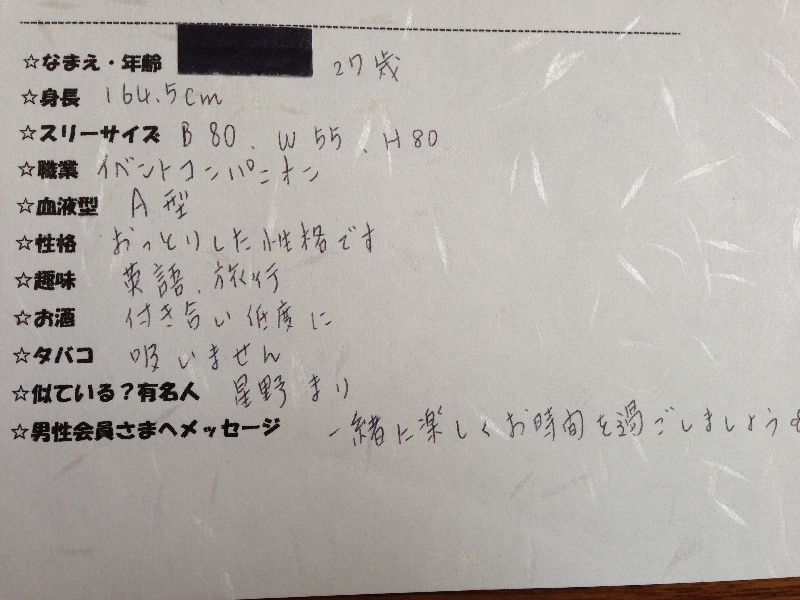 ☆なまえ・年齢 27歳
☆身長 164.5cm
☆スリーサイズ B 80. W 55. H 80
☆職業 イベントコンパニオン
☆血液型 A型
☆性格 おっとりした性格です
☆趣味 英語、旅行
☆お酒 付き合い低度に
☆タバコ 吸いません
☆似ている?有名人 星野まり
☆男性会員さまへメッセージ 一緒に楽しくお時間を過ごしましょう